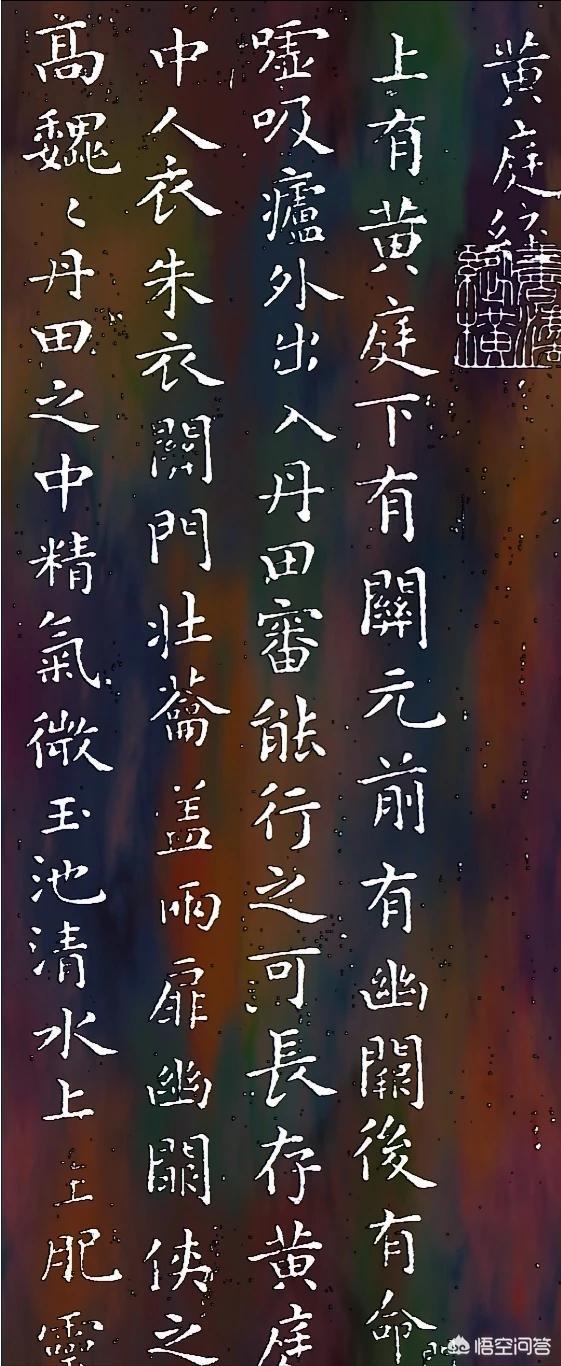 黄庭經
上有黄庭下有關元前有幽闕後有命
嘘吸廬外出入丹田審能行之可長存黄庭
中人衣朱衣關門壯蘥盖兩扉幽闕俠之
高魏〻丹田之中精氣微玉池清水上生肥靈
悟空问答